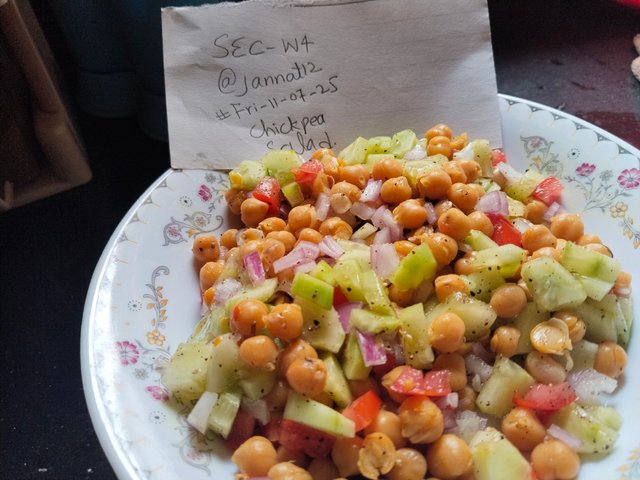 SEC-W4
@jannat12
#Fri-11-07-25
Chickpea
Salad